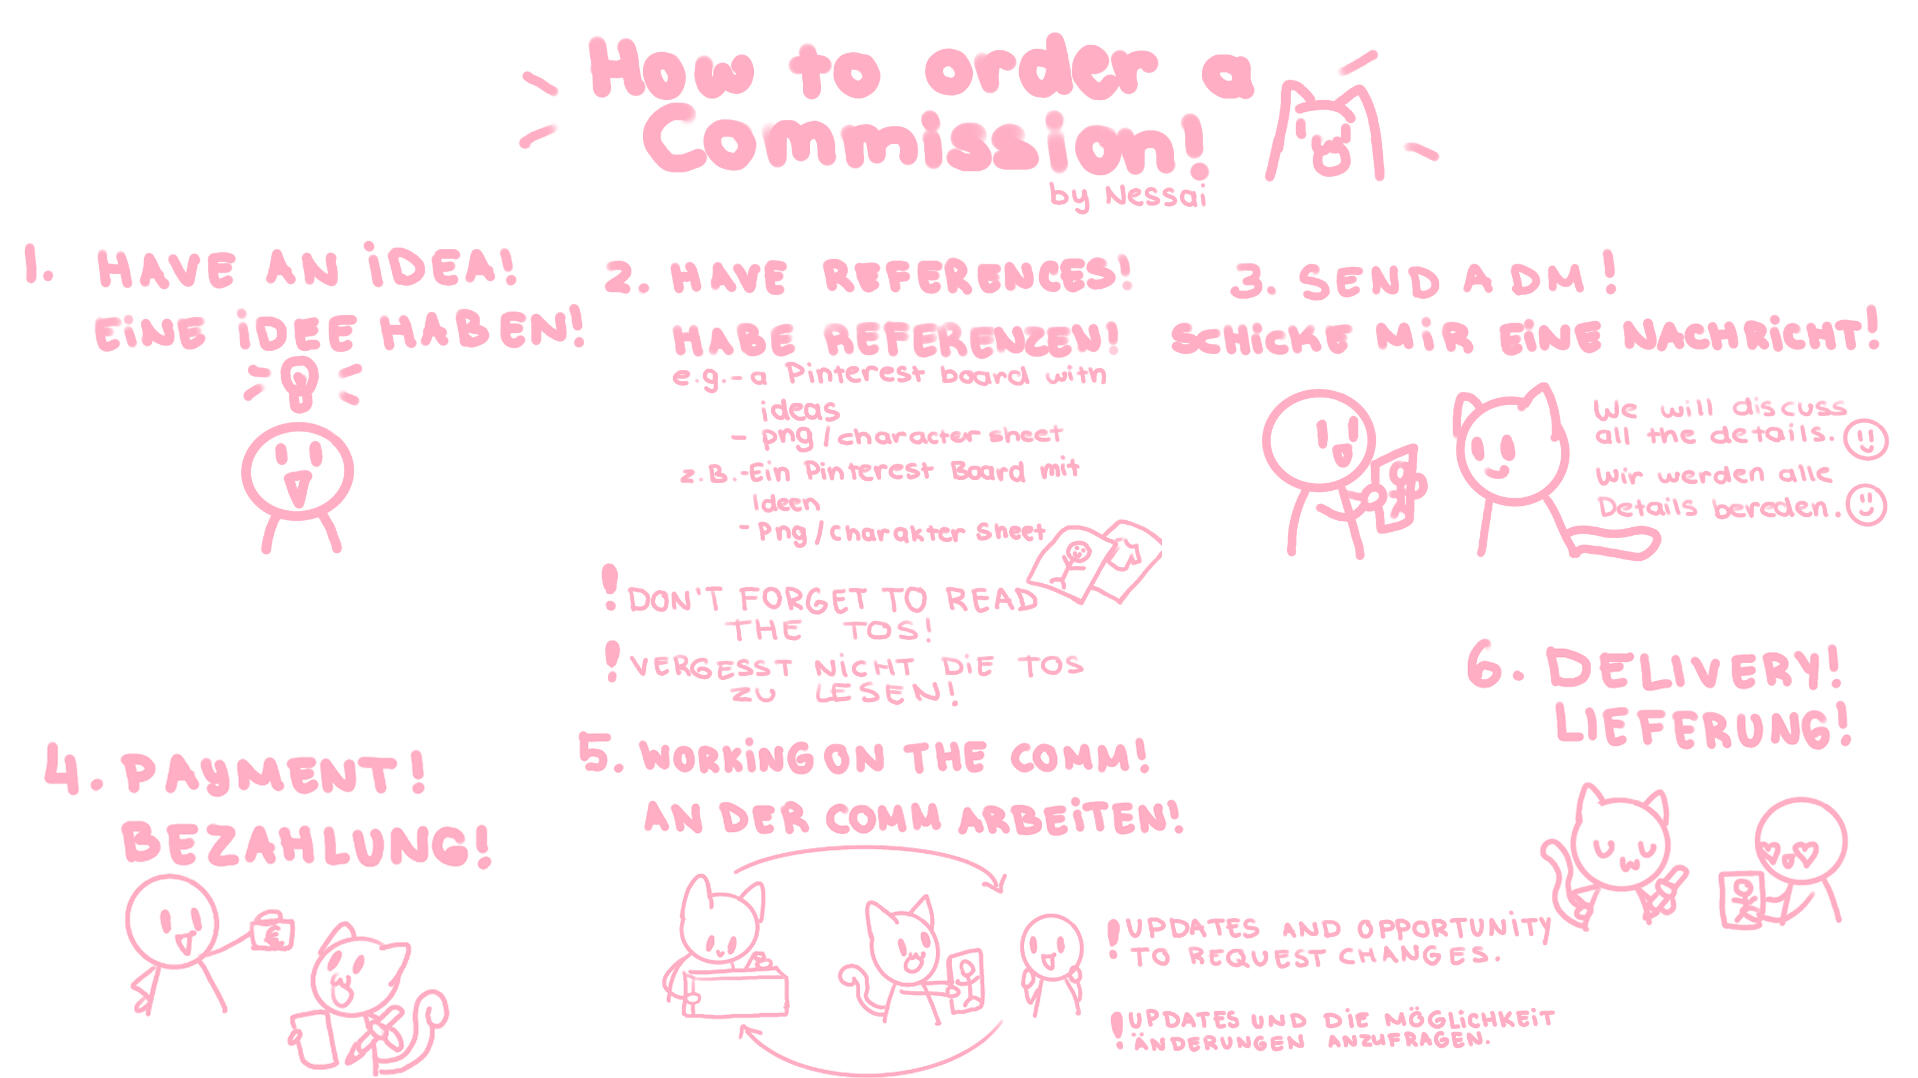 How to order a
Commission!
by Nessai
1. HAVE AN IDEA!
EINE IDEE HABEN!
2. HAVE REFERENCES!
HABE REFERENZEN!
e.g. - a Pinterest board with
ideas
- png / character sheet
z.B. - Ein Pinterest Board mit
Ideen
- Png / Charakter Sheet
! DON'T FORGET TO READ
THE TOS!
! VERGESST NICHT DIE TOS
ZU LESEN!
3. SEND A DM!
SCHICKE MIR EINE NACHRICHT!
We will discuss
all the details.
Wir werden alle
Details bereden.
4. PAYMENT!
BEZAHLUNG!
€
5. WORKING ON THE COMM!
AN DER COMM ARBEITEN!
! UPDATES AND OPPORTUNITY
TO REQUEST CHANGES.
! UPDATES UND DIE MÖGLICHKEIT
ÄNDERUNGEN ANZUFRAGEN.
6. DELIVERY!
LIEFERUNG!